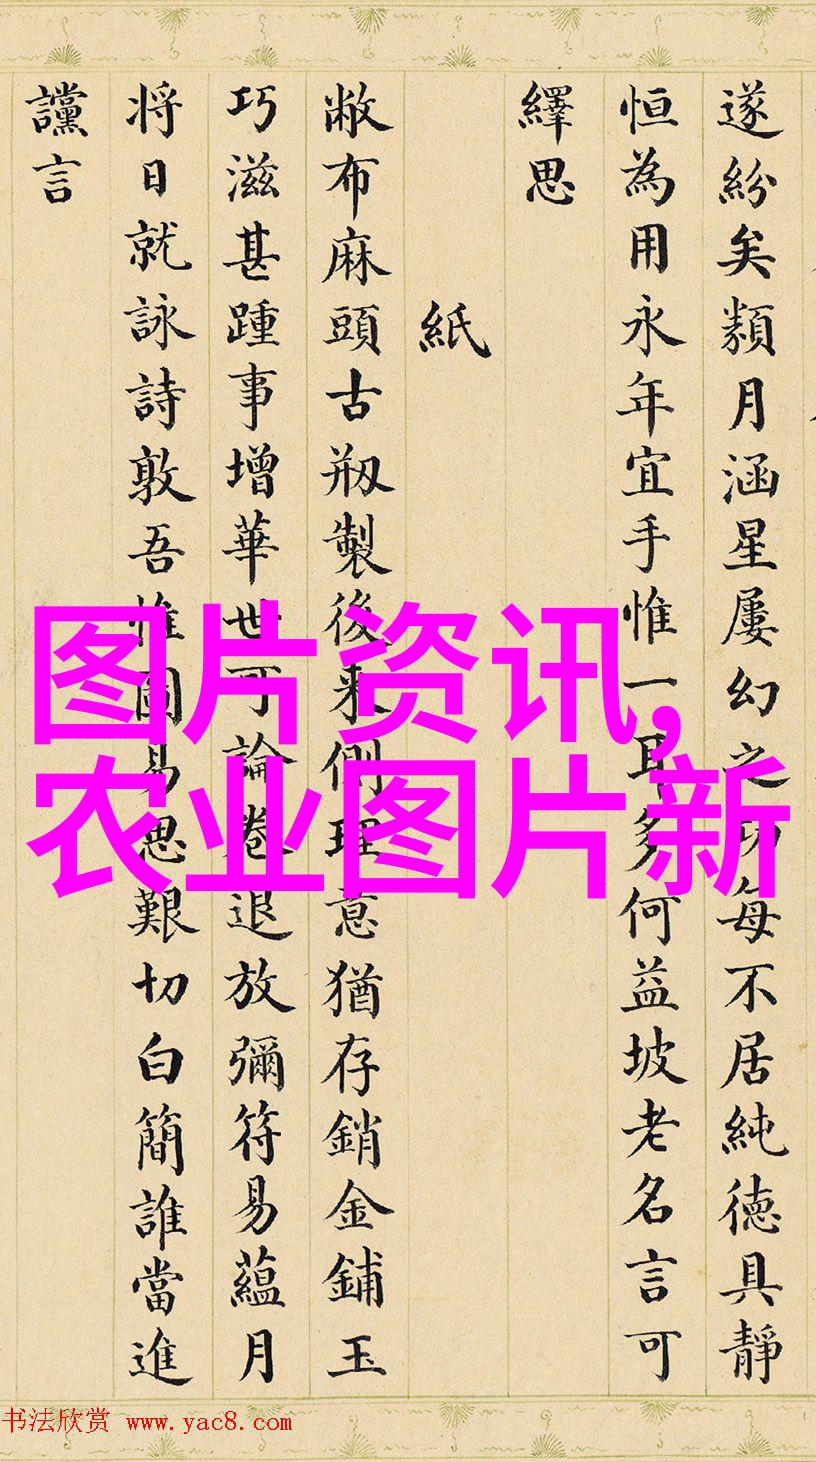 遂紛矣類月涵星屢幻之功每不居純德具靜
恒為用永年宜手惟一耳多何益坡老名言可
繹思
紙
敝布麻頭古剏製後來側理意猶存銷金鋪玉
巧滋甚踵事增華世可論卷退放彌符易蘊月
將日就詠詩敦吾惟圖易思艱切白簡誰當進
讜言
图片资讯,
农业图片新
书法欣赏 www.yac8.com